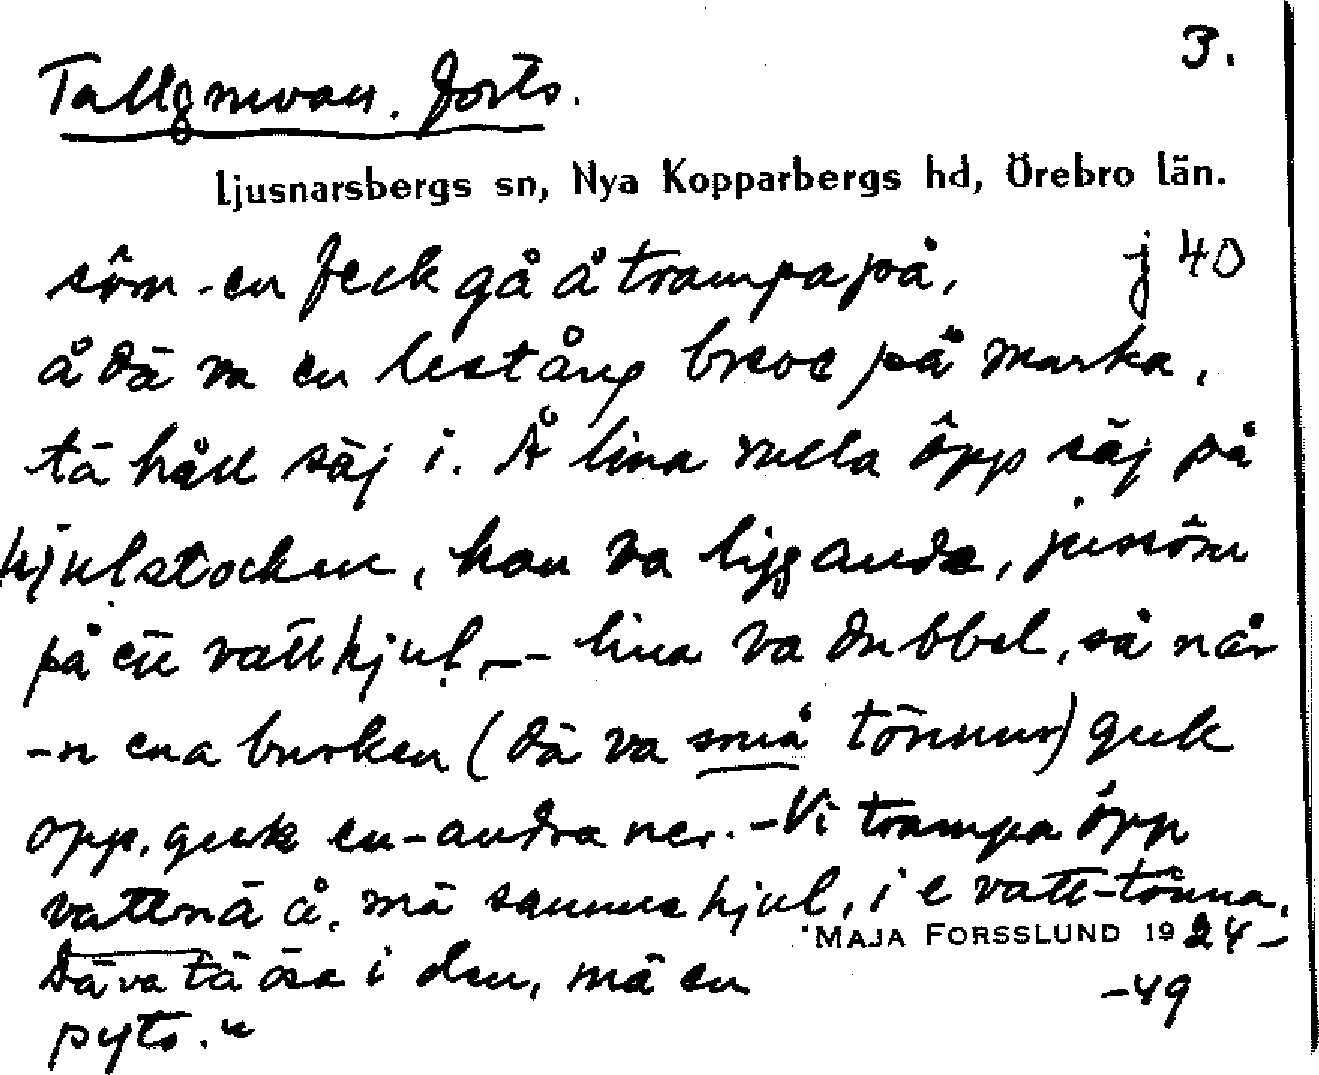 3.
Tallgruvan. forts.
Ljusnarsbergs sn, Nya Kopparbergs hd, Örebro län.
sôm -en feck gå å trampa på, j 40
å dä va en lestång breve på marka,
tä håll säj i. Å lina rulla ôpp säj på
hjulstocken, han va liggande, jussôm
på ett vatthjul, -- lina va dubbel, så når
-n ena burken (dä va små tônnur) gick
opp, gick en-andra ner. - Vi trampa ôpp
vattnä å, mä samma hjul, i e vatt-tônna.
Dä va tä ösa i den, mä en
pyts."
MAJA FORSSLUND 1924-
-49